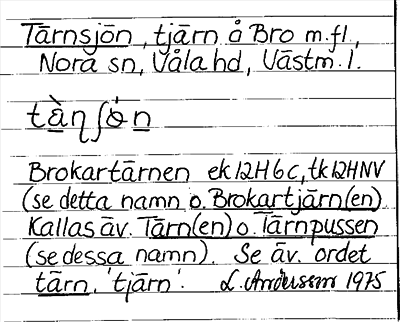 Tärnsjön, tjärn å Bro m.fl.,
Nora sn, Våla hd, Västm. l.
tàηʃòn
Brokartärnen ek12H6c, tk12HNV
(se detta namn o. Brokartjärn(en)
Kallas äv. Tärn(en) o. Tärnpussen
(se dessa namn). Se äv. ordet
tärn, 'tjärn'. L. Andersson 1975